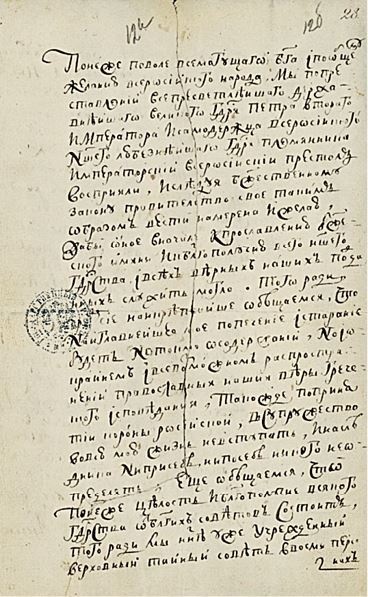 12и 12б 23
Понеже поволе всемогущагѡ бга ипообще
желанию всеросиского народа, Мы попре
ставлениі всепресветлѣишаго держа
внѣишаго великого гдря Петра Втораго
Императора исамодержца всеросиского
Ншего любезнѣишаго гдря племянника
Императорскиі всеросискиі престолъ
восприяли, и следуя бжественному
закону правителство свое такимъ
образомъ вести намерена ижелаю,
Дабы оное вначале кпрославлению бже
ского імяни икблагополучию всего ншего
Гдрства івсѣхъ вѣрныхъ нашихъ подда
нныхъ служить могло. Того ради,
сие наикрепчаіше обещаемся, что
наиглавнеишее мое попечение істараніе
будетъ нетокмо осодержаниі, ноіѡ
краинемъ івсевозможномъ распростра
нениі православныя нашия вѣры Грече
ского ісповѣдания, Такожде поприня
тиі короны росиской, всупружество
вовсю мою жизнь невступать, инаслѣ
дника ниприсебѣ, нипосебѣ никого неѡ
предѣлять. Еще обещаемся, что
понеже целость иблагополучие всякого
Гдрства ѿблагихъ совѣтовъ состоитъ,
того ради мы нинѣ уже учрежденный
верховный таиный совѣтъ ввосми пер
нахъ